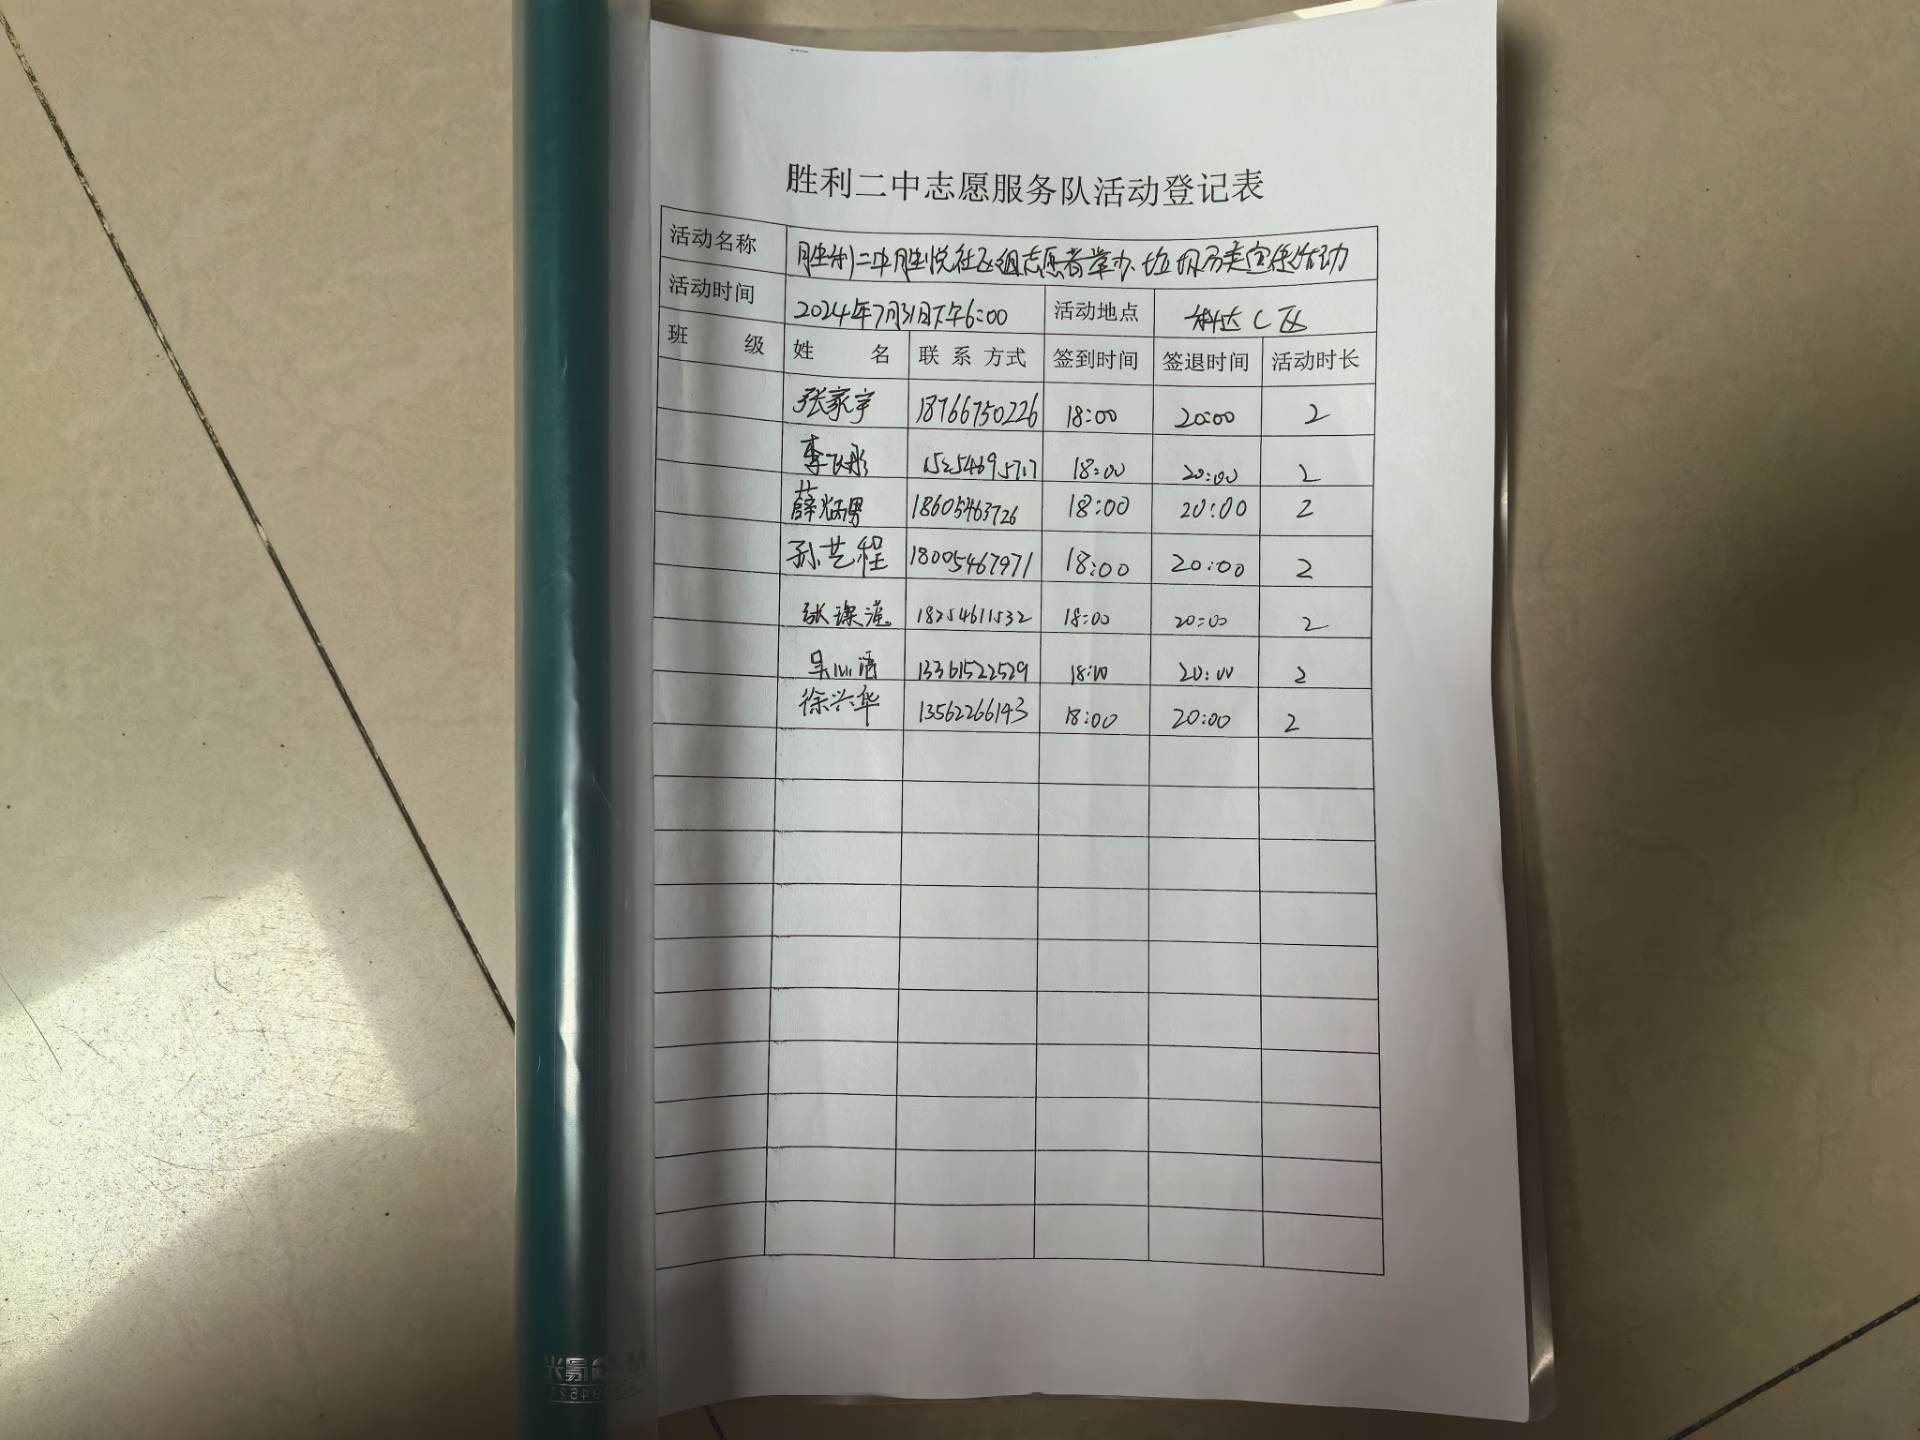 胜利二中志愿服务队活动登记表
活动名称 胜利二中胜悦社区组志愿者举办垃圾分类宣传活动
活动时间 2024年7月31日下午6:00 活动地点 科达C区
班 级 姓 名 联系方式 签到时间 签退时间 活动时长
张家宇 18766750226 18:00 20:00 2
李飞彤 15254695717 18:00 20:00 2
薛炳男 18605463726 18:00 20:00 2
孙艺程 18005467971 18:00 20:00 2
张 18254611532 18:00 20:00 2
吴心语 13361522529 18:00 20:00 2
徐兴华 13562266143 18:00 20:00 2
M&G晨光